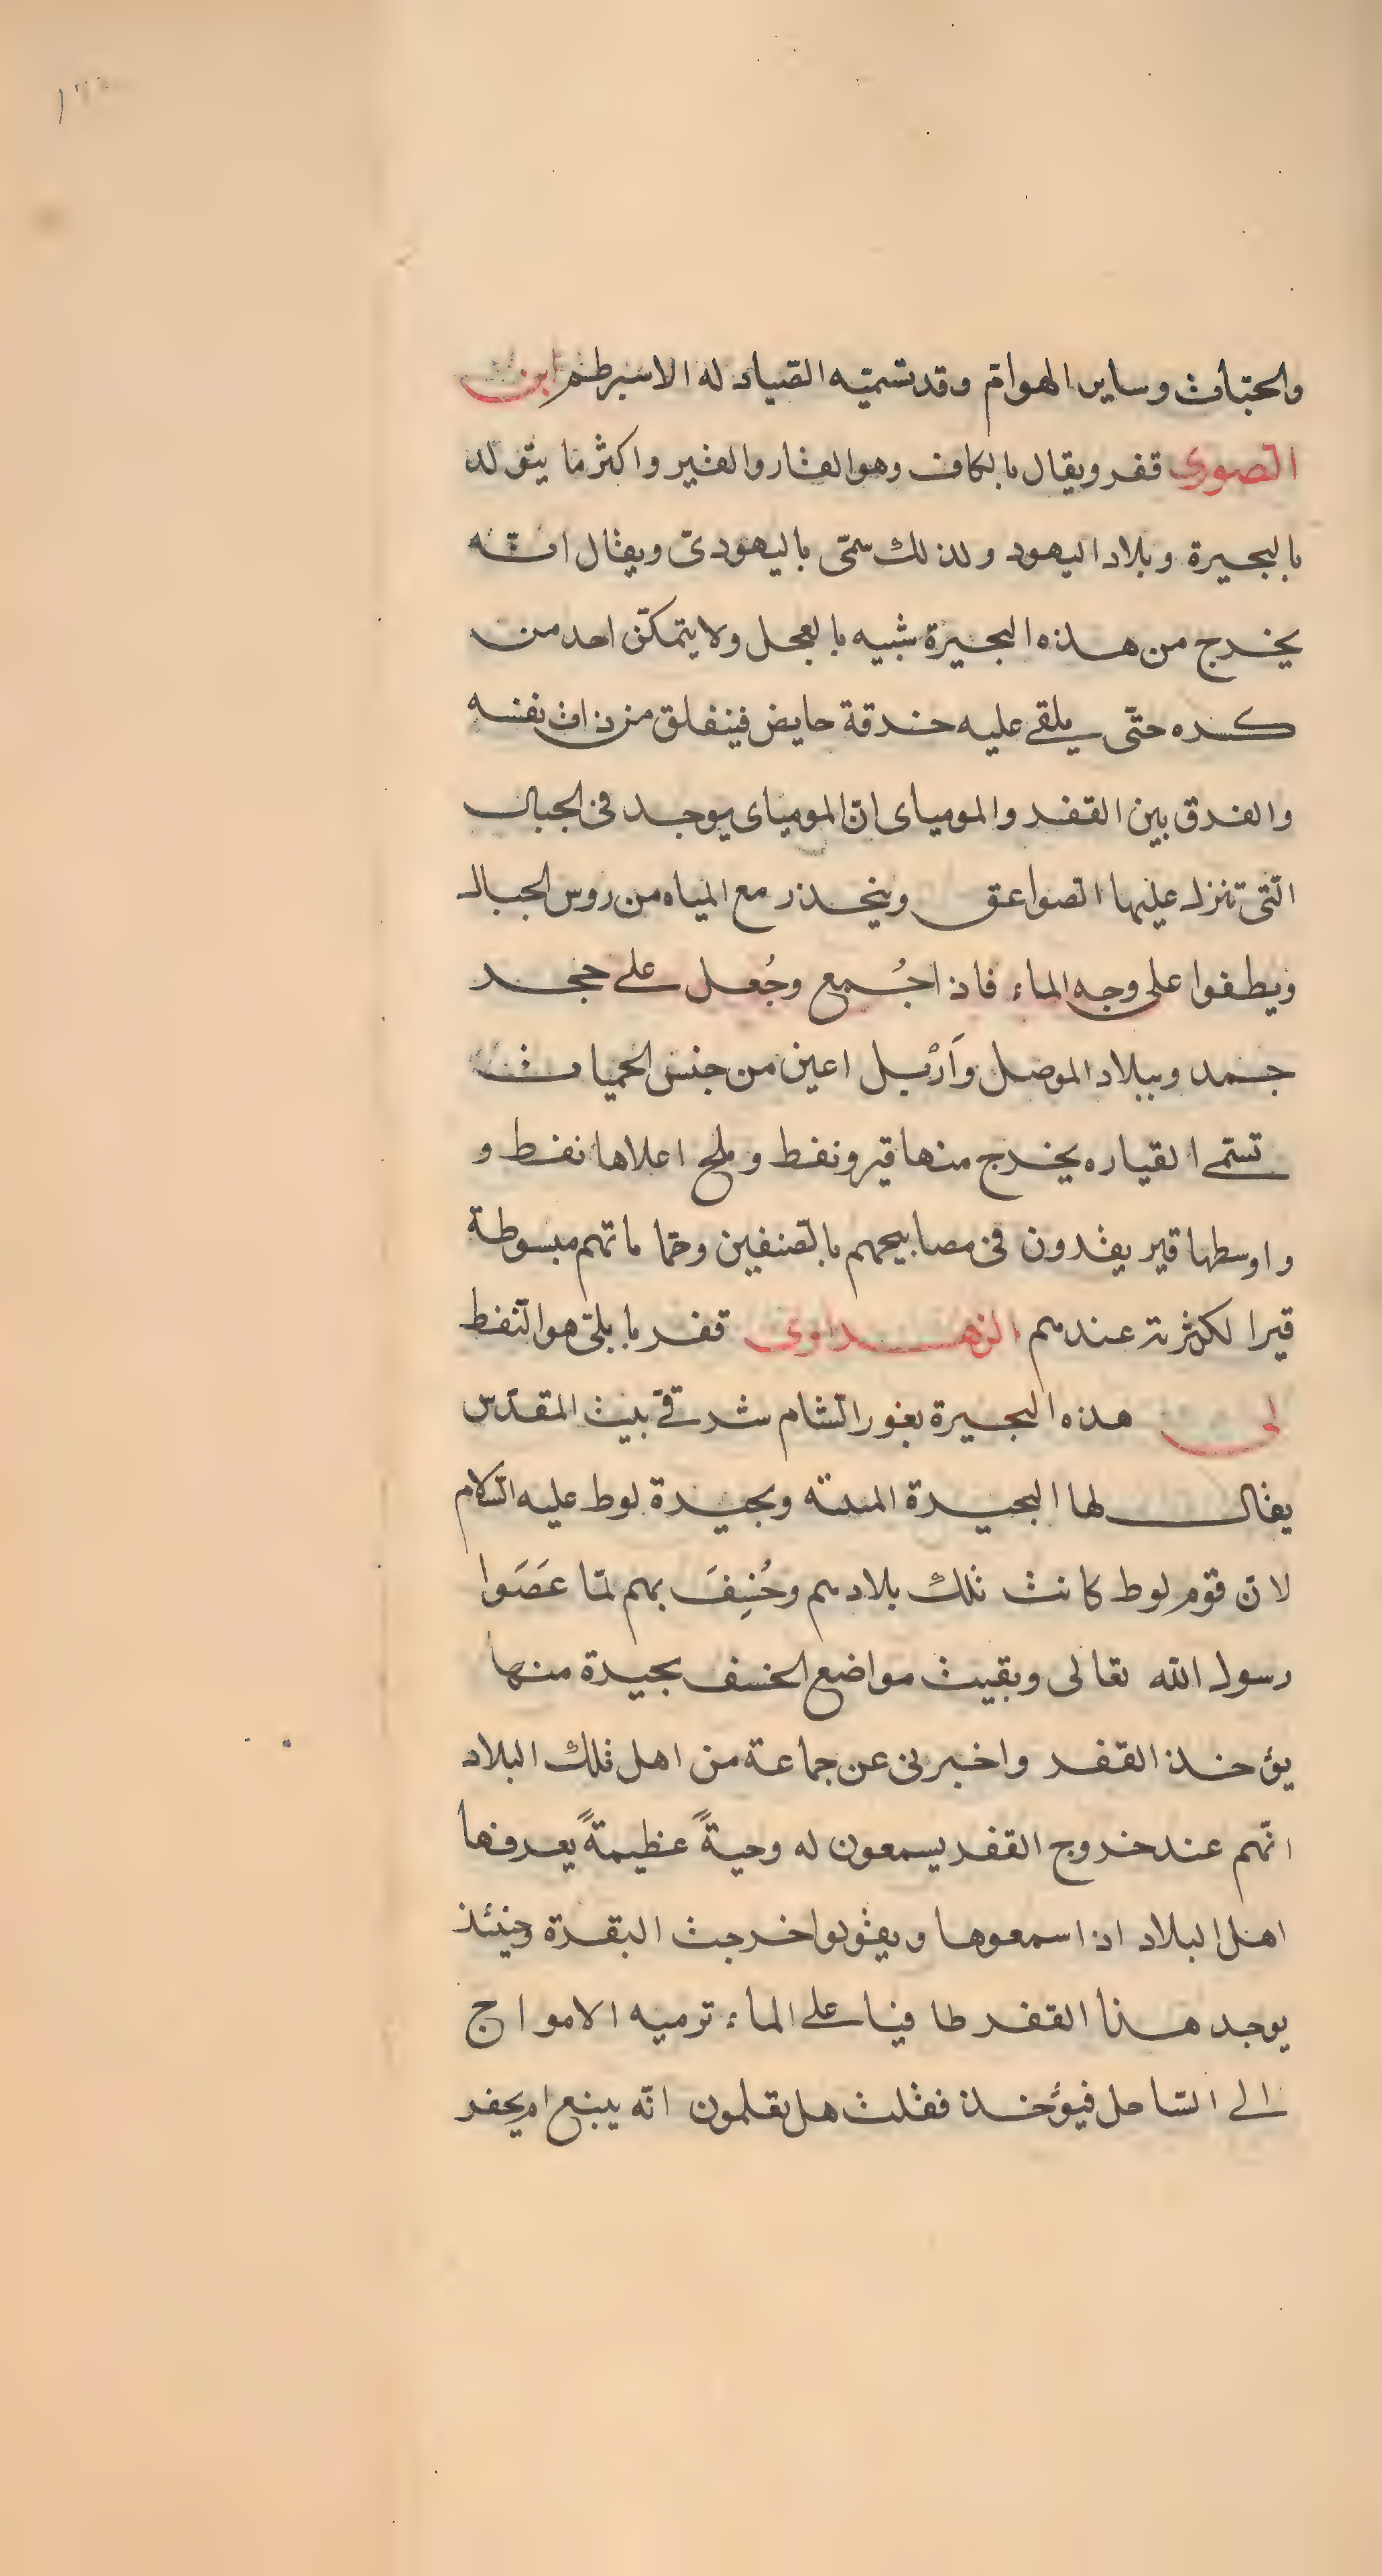 والحيّات وساير الهوامّ وقد تسميّه الصّيادله الاسبرطم ابن
الصورى قفر ويقال بالكاف وهو القار والقير واكثر ما يتولد
بالبحيرة وبلاد اليهود ولذلك سمّى باليهودىّ ويقال انّه
يخرج من هذه البحيرة شبيه بالعجل ولا يتمكّن احد من
كسره حتّى يلقى عليه خرقة حايض فينفلق من ذات نفسه
والفرق بين القفر والمومياى انّ المومياى يوجد فى الجبال
الّتى تنزل عليها الصواعق وينحدر مع المياه من روس الجبال
ويطفوا على وجه الماء فاذا جُمع وجُعل على حجر
جمد وببلاد الموصل وَارْبل اعين من جنس الحميات
تسمّى القياره يخرج منها قير ونفط وملح اعلاها نفط و
واوسطها قير يقدون فى مصابيحهم بالصّنفين وحمّاماتهم مبسوطة
قيرا لكثرته عندهم الزهراوى قفر بابلىّ هو النّفط
لى هذه البحيرة بغور الشام شرقىّ بيت المقدّس
يقال لها البحيرة المنتنه وبحيرة لوط عليه السّلام
لانّ قوم لوط كانت تلك بلادهم وخُسِفَ بهم لمّا عَصَوا
رسول الله تعالى وبقيت مواضع الخسف بحيرة منها
يؤخذ القفر واخبرنى عن جماعة من اهل تلك البلاد
انّهم عند خروج القفر يسمعون له وحيةً عظيمةً يعرفها
اهل البلاد اذا سمعوها ويقولوا خرجت البقرة وحينئذ
يوجد هذا القفر طافيا على الماء ترميه الامواج
الى السّاحل فيؤخذ فقلت هل تعلمون انّه ينبع ام يحفر